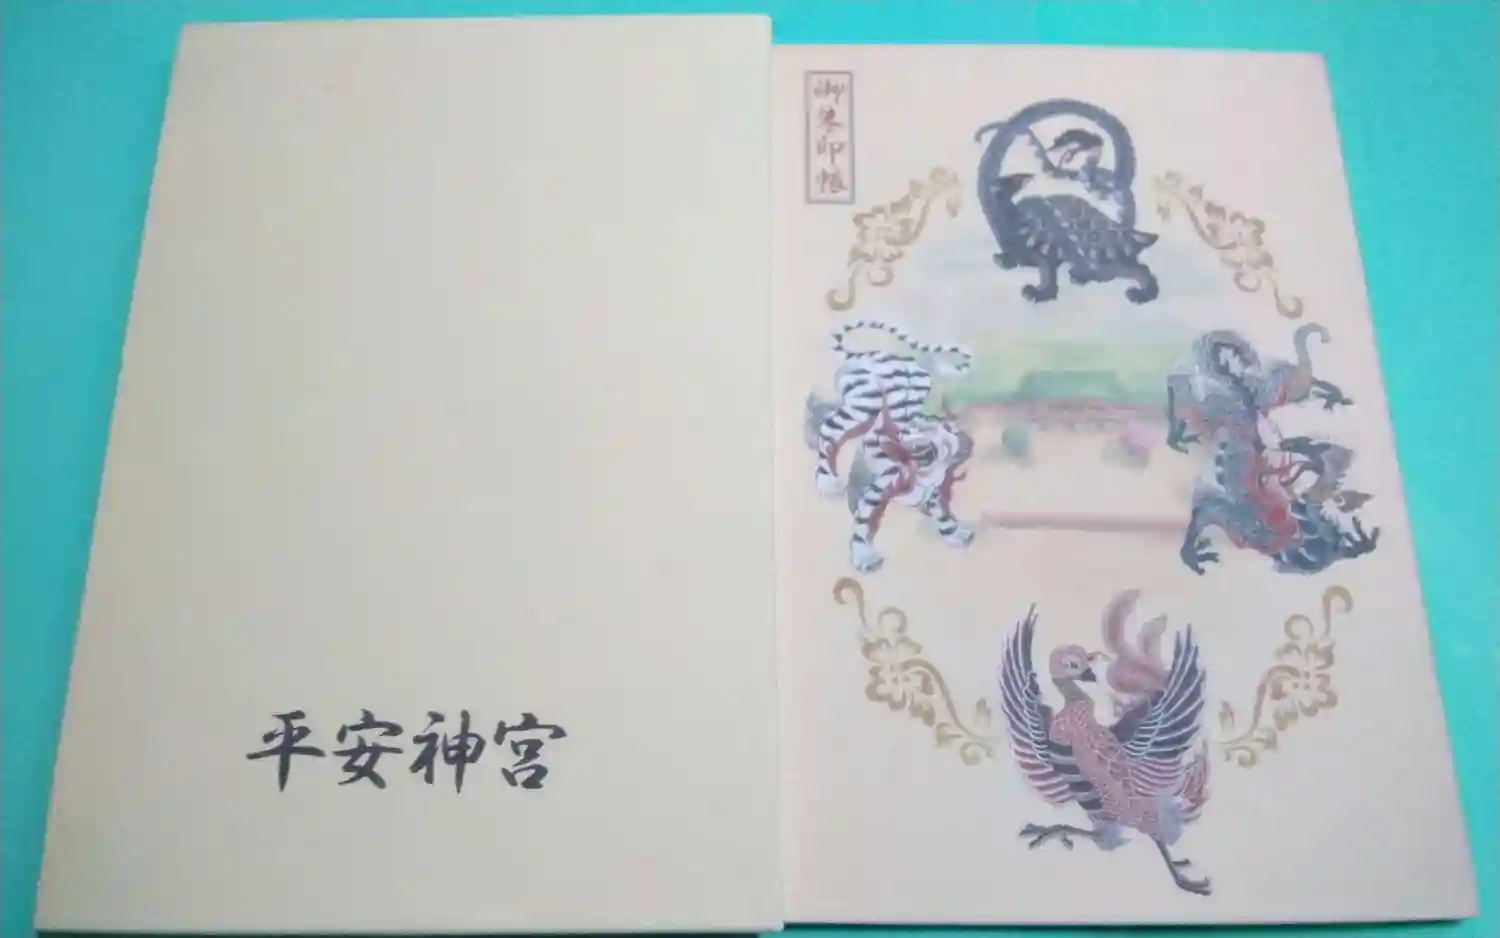 平安神宮
御朱印帳